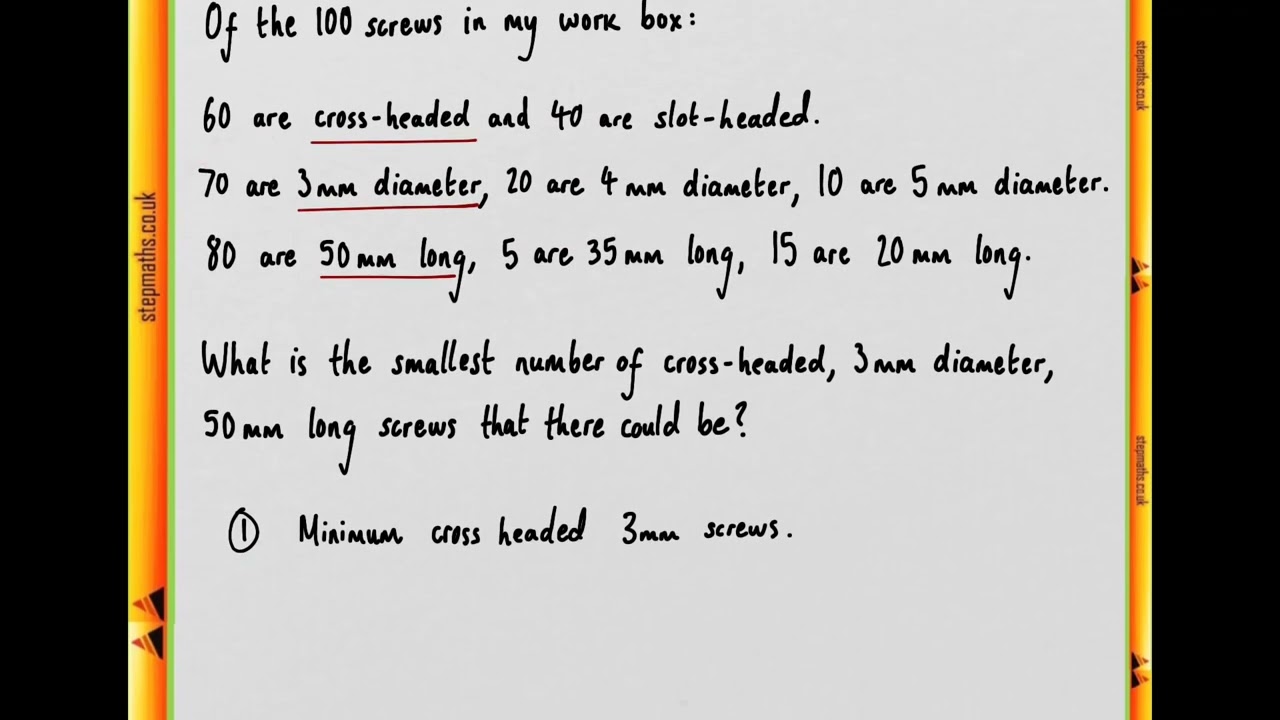 Of the 100 screws in my work box:
60 are cross-headed and 40 are slot-headed.
70 are 3mm diameter, 20 are 4mm diameter, 10 are 5mm diameter.
80 are 50mm long, 5 are 35mm long, 15 are 20mm long.
What is the smallest number of cross-headed, 3mm diameter,
50mm long screws that there could be?
① Minimum cross headed 3mm screws.
stepmaths.co.uk
stepmaths.co.uk
stepmaths.co.uk